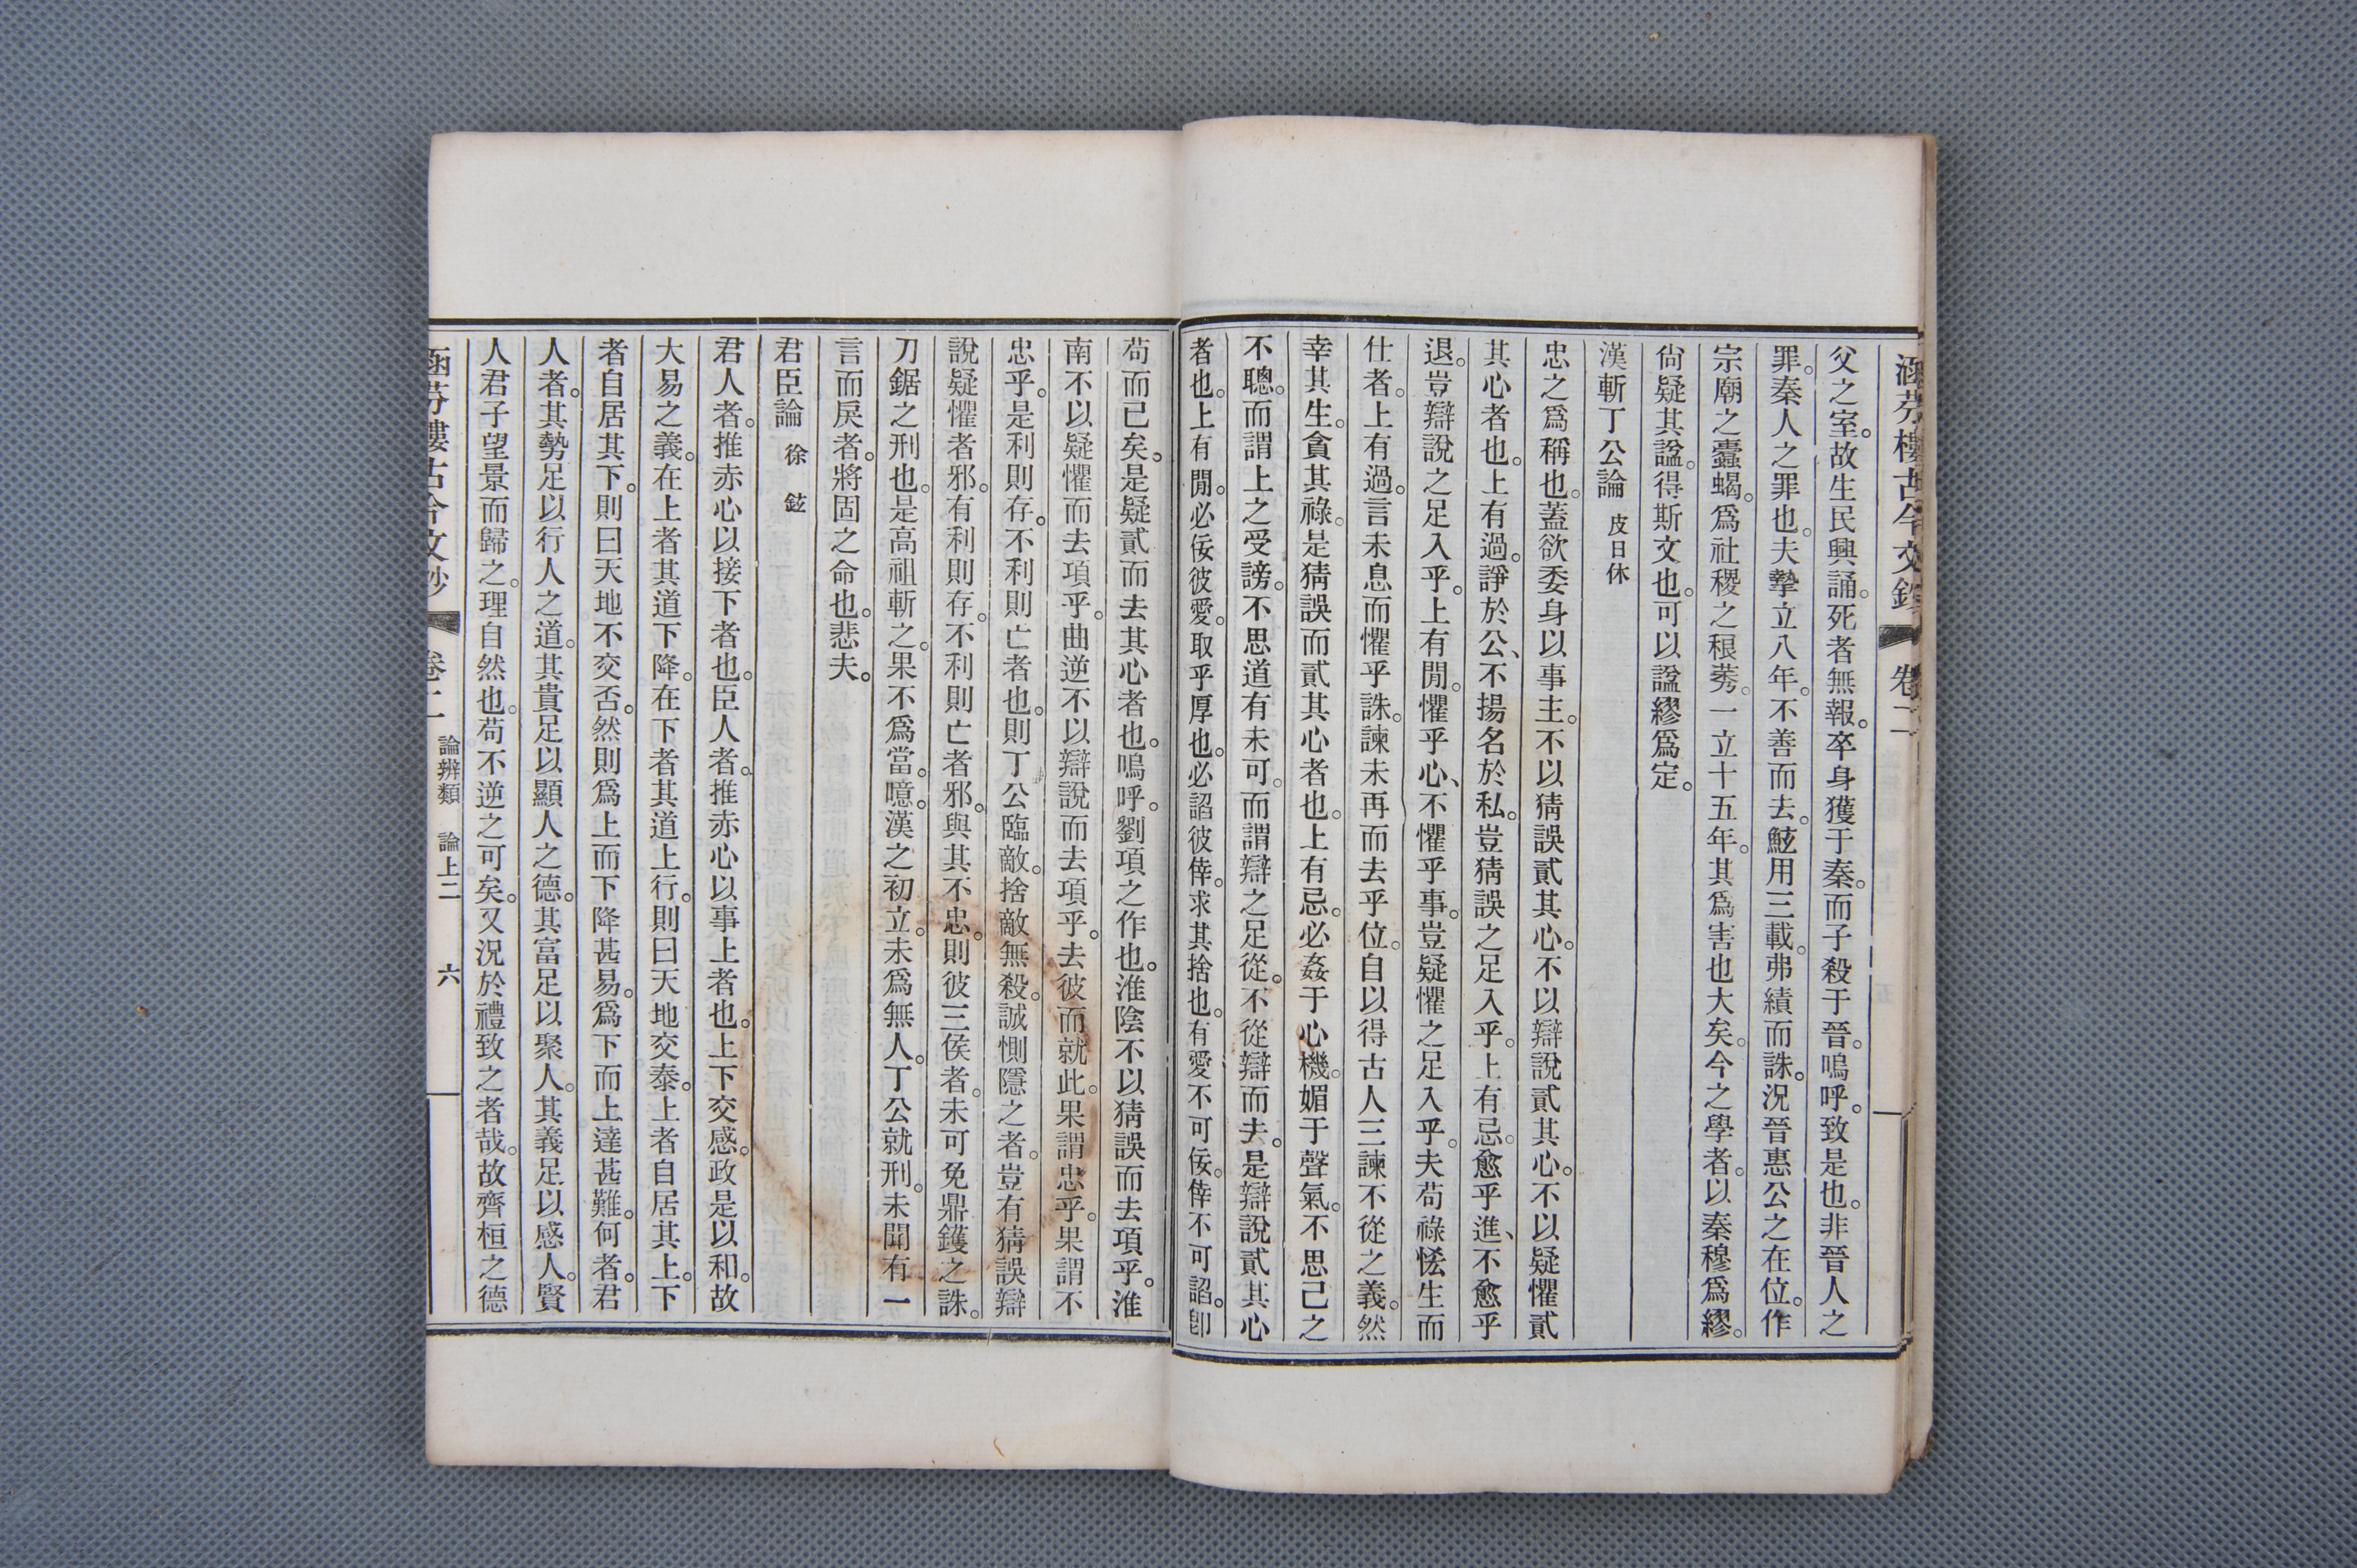 涵芬樓古今文鈔 卷二
父之室。故生民興誦。死者無報。卒身獲于秦。而子殺于晉。嗚呼。致是也。非晉人之
罪。秦人之罪也。夫摯立八年。不善而去。鮌用三載。弗績而誅。況晉惠公之在位。作
宗廟之蠹蝎。爲社稷之稂莠。一立十五年。其爲害也大矣。今之學者。以秦穆爲繆。
尙疑其諡。得斯文也。可以諡繆爲定。
漢斬丁公論 皮日休
忠之爲稱也。蓋欲委身以事主。不以猜誤貳其心。不以辯說貳其心。不以疑懼貳
其心者也。上有過。諍於公、不揚名於私。豈猜誤之足入乎。上有忌。愈乎進、不愈乎
退。豈辯說之足入乎。上有閒。懼乎心、不懼乎事。豈疑懼之足入乎。夫苟祿恡生而
仕者。上有過。言未息而懼乎誅。諫未再而去乎位。自以得古人三諫不從之義。然
幸其生。貪其祿。是猜誤而貳其心者也。上有忌。必姦于心機。媚于聲氣。不思己之
不聰。而謂上之受謗。不思道有未可。而謂辯之足從。不從辯而去。是辯說貳其心
者也。上有閒。必佞彼愛。取乎厚也。必諂彼倖。求其捨也。有愛不可佞。倖不可諂。卽
苟而已矣。是疑貳而去其心者也。嗚呼。劉項之作也。淮陰不以猜誤而去項乎。淮
南不以疑懼而去項乎。曲逆不以辯說而去項乎。去彼而就此。果謂忠乎。果謂不
忠乎。是利則存。不利則亡者也。則丁公臨敵。捨敵無殺。誠惻隱之者。豈有猜誤辯
說疑懼者邪。有利則存。不利則亡者邪。與其不忠。則彼三侯者。未可免鼎鑊之誅。
刀鋸之刑也。是高祖斬之。果不爲當。噫。漢之初立。未爲無人。丁公就刑。未聞有一
言而戾者。將固之命也。悲夫。
君臣論 徐鉉
君人者。推赤心以接下者也。臣人者。推赤心以事上者也。上下交感。政是以和。故
大易之義。在上者其道下降。在下者其道上行。則曰天地交泰。上者自居其上。下
者自居其下。則曰天地不交否。然則爲上而下降甚易。爲下而上達甚難。何者。君
人者。其勢足以行人之道。其貴足以顯人之德。其富足以聚人。其義足以感人。賢
人君子望景而歸之。理自然也。苟不逆之可矣。又況於禮致之者哉。故齊桓之德
涵芬樓古今文鈔 卷二 論辨類 論上二 六